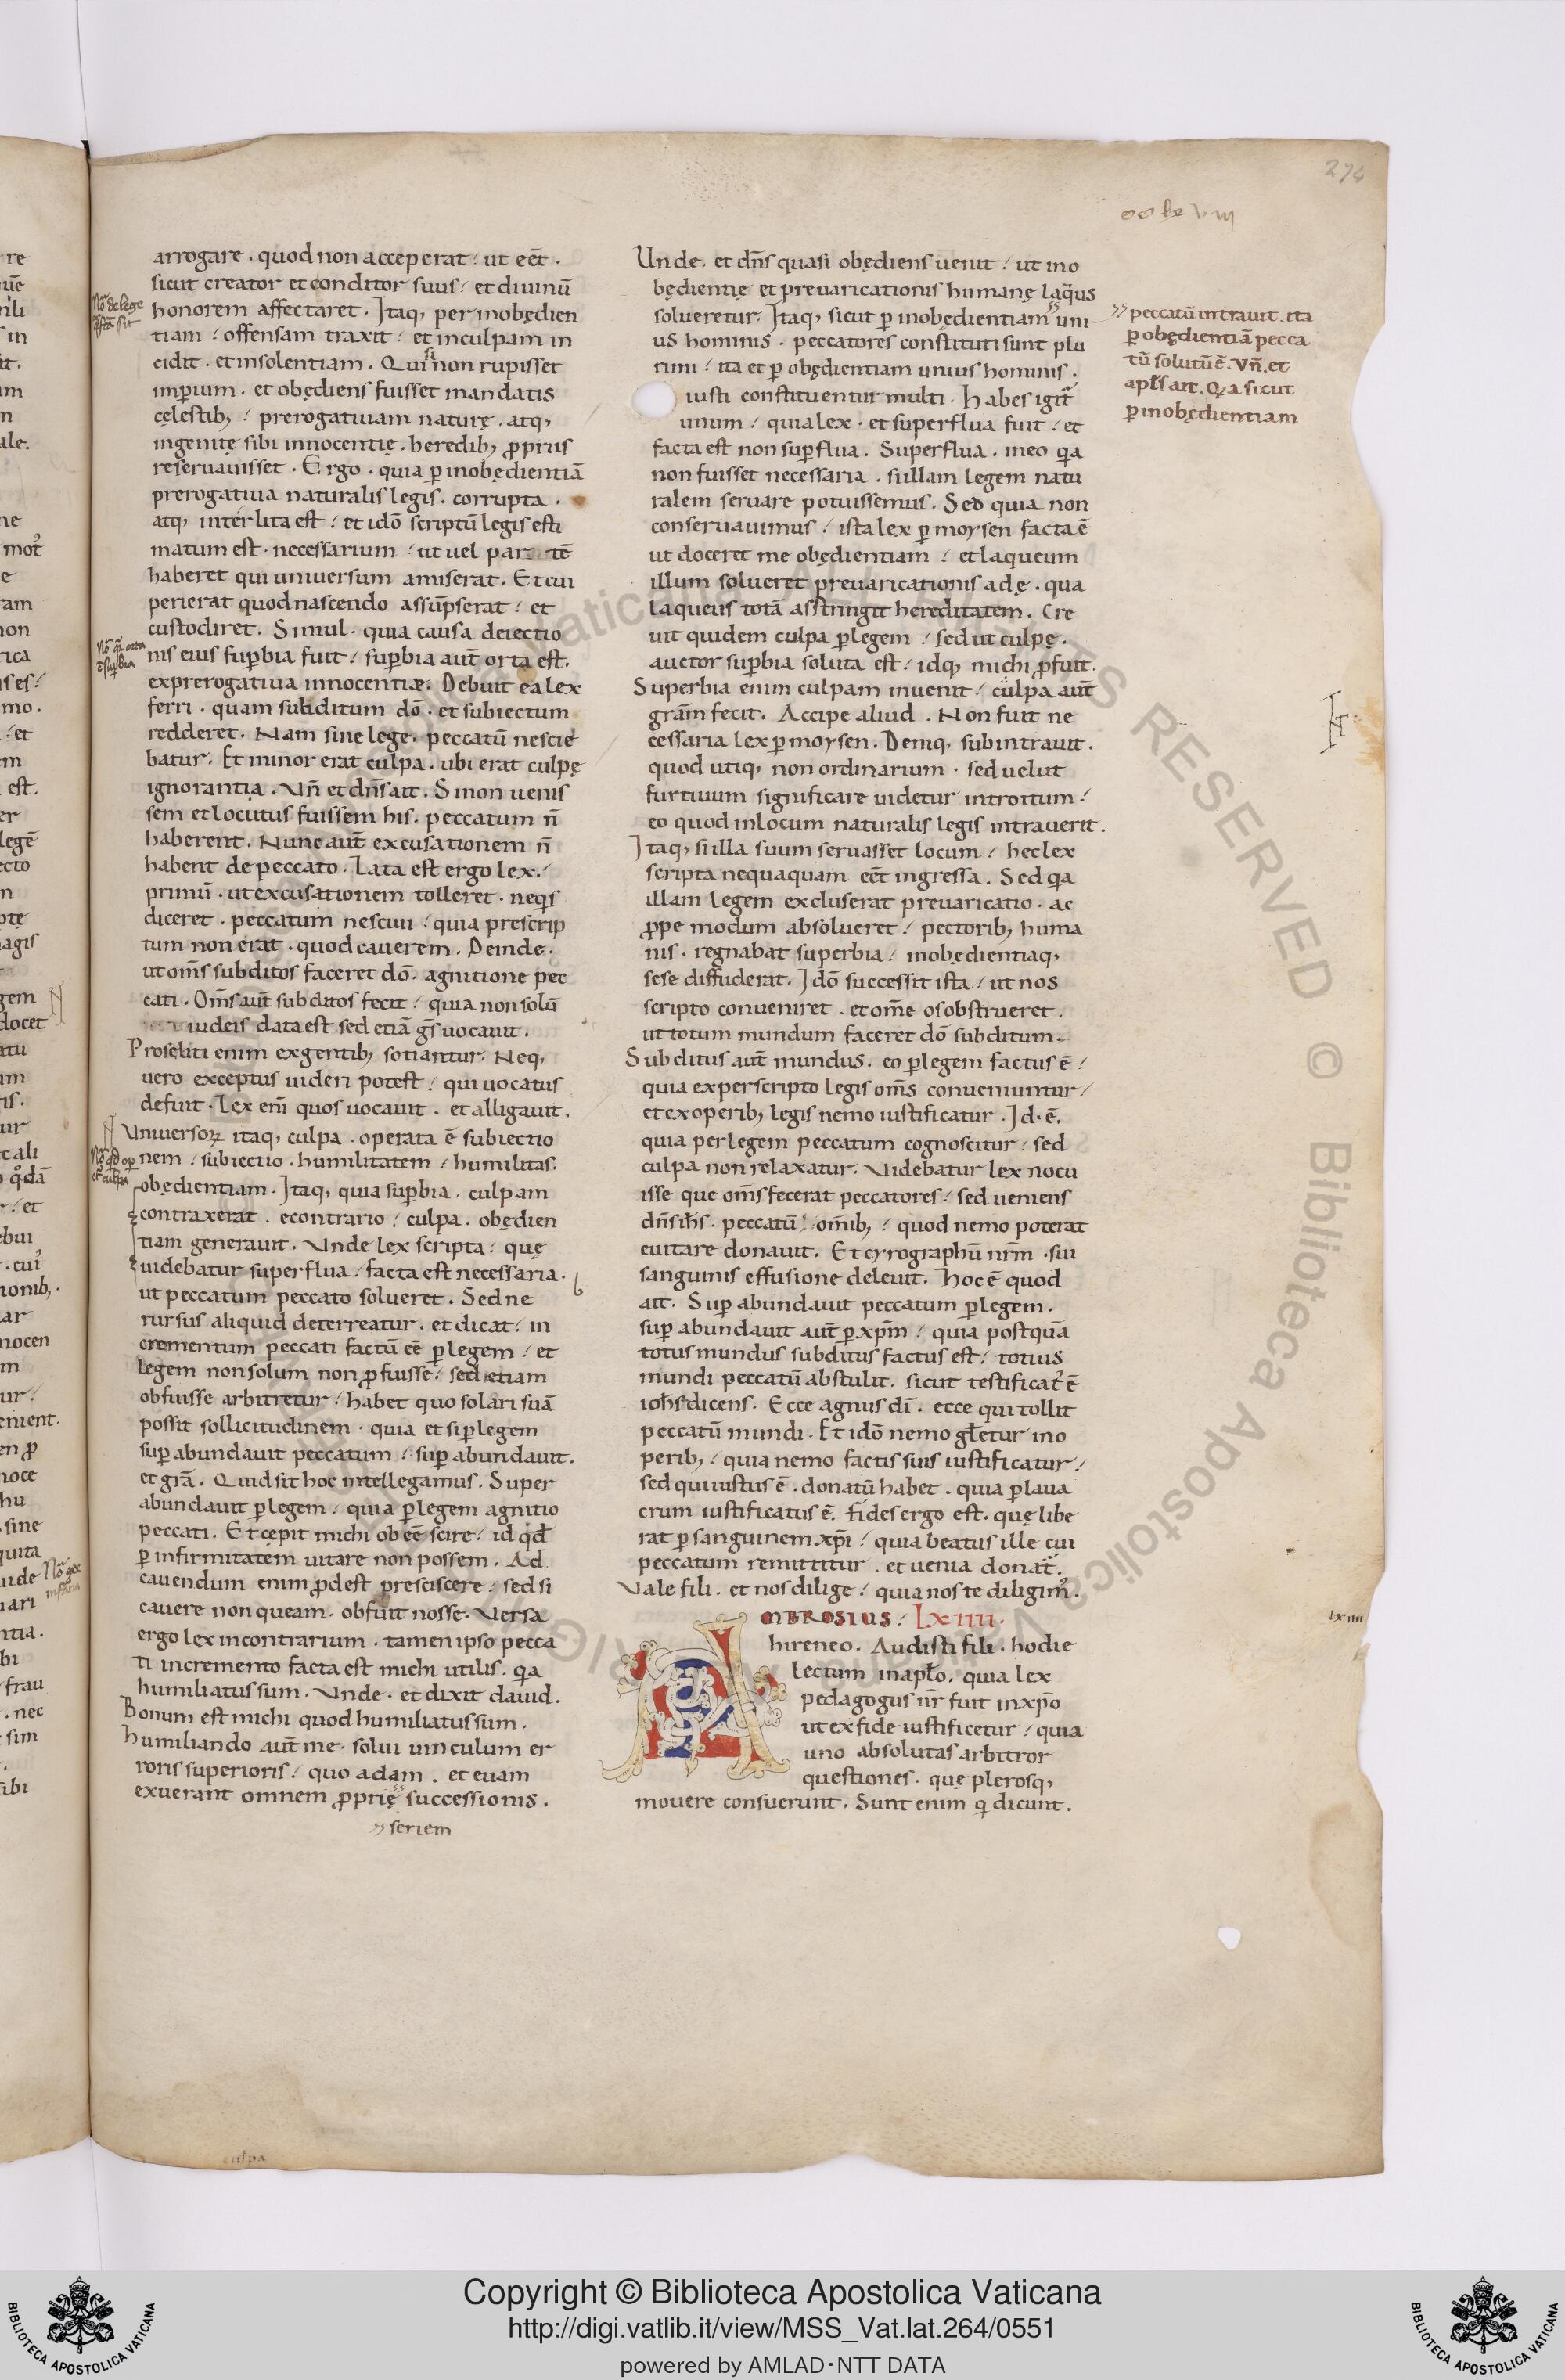 274
arrogare . quod non acceperat ⁏ ut eēt .
sicut creator et conditor suus ⁏ et diuinū
honorem affectaret . Itaq, per inobędien
tiam ⁏ offensam traxit ⁏ et inculpam in
cidit . et insolentiam . Qui si non rupisset
imꝑium . et obędiens fuisset mandatis
cęlestib, ⁏ prerogatiuam naturę . atq,
ingenitę sibi innocentię . heredib, ꝓpriis
reseruauisset . Ergo . quia ꝑ inobędientiā
prerogatiua naturalis legis . corrupta .
atq, interlita est ⁏ et idō scriptū legis esti
matum est . necessarium ⁏ ut uel par tē
haberet qui uniuersum amiserat . Et cui
perierat quod nascendo assūpserat ⁏ et
custodiret . Simul . quia causa deiectio
nis eius suꝑbia fuit ⁏ suꝑbia aut̄ orta est .
exprerogatiua innocentiæ . Debuit ea lex
ferri . quam subditum dō . et subiectum
redderet . Nam sine lege . peccatū nescie
batur . Et minor erat culpa . ubi erat culpę
ignorantia . Vn̄ et dn̄s ait . Si non uenis
sem et locutus fuissem his . peccatum n̄
haberent . Nunc aut̄ excusationem n̄
habent de peccato . Lata est ergo lex ⁏
primū . ut excusationem tolleret . neq̇s
diceret . peccatum nesciui ⁏ quia prescrip
tum non erat . quod cauerem . Deinde .
ut om̄s subditos faceret dō . agnitione pec
cati . Om̄s aut̄ subditos fecit ⁏ quia non solū
iudeis data est sed etiā gs̄ uocauit .
Proseliti enim exgentib, sotiantur . Neq,
uero exceptus uideri potest ⁏ qui uocatus
defuit . Lex eni̅ quos uocauit . et alligauit .
Vniuersoꝝ itaq, culpa . operata ē subiectio
nem ⁏ subiectio . humilitatem ⁏ humilitas .
obędientiam . Itaq, quia suꝑbia . culpam
contraxerat . econtrario ⁏ culpa . obędien
tiam generauit . Vnde lex scripta ⁏ quę
uidebatur superflua ⁏ facta est necessaria .
ut peccatum peccato solueret . Sed ne
rursus aliquid deterreatur . et dicat ⁏ in
crementum peccati factū eē ꝑ legem ⁏ et
legem non solum non ꝓfuisse ⁏ sed etiam
obfuisse arbitretur ⁏ habet quo solari suā
possit sollicitudinem . quia et si ꝑ legem
suꝑabundauit peccatum ⁏ suꝑabundauit .
et grā . Quid sit hoc intellegamus . Super
abundauit ꝑ legem ⁏ quia ꝑ legem agnitio
peccati . Et cępit michi obeē scire ⁏ id qđ
ꝑ infirmitatem uitare non possem . Ad
cauendum enim ꝓdest presciscere ⁏ sed si
cauere non queam . obfuit nosse . Versa
ergo lex incontrarium . tamen ipso pecca
ti incremento facta est michi utilis . q̇a
humiliatus sum . Vnde . et dixit dauid .
Bonum est michi quod humiliatus sum .
humiliando aut̄ me . solui uinculum er
roris superioris ⁏ quo adam . et euam
exuerant omnem ꝓprię successionis .
seriem
Vnde . et dn̄s quasi obędiens uenit ⁏ ut ino
będientię et preuaricationis humanę laq̈us
solueretur . Itaq, sicut ꝑ inobędientiam uni
us hominis . peccatores constituti sunt plu
rimi ⁏ ita et ꝑ obędientiam unius hominis .
iusti constituentur multi . Habes igit᷑
unum ⁏ quia lex . et superflua fuit ⁏ et
facta est non suꝑflua . Superflua . ineo q̇a
non fuisset necessaria . si illam legem natu
ralem seruare potuissemus . Sed quia non
conseruauimus ⁏ ista lex ꝑ moysen facta ē
ut doceret me obędientiam ⁏ et laqueum
illum solueret preuaricationis adę . qua
laqueus totā asstringit hereditatem . Cre
uit quidem culpa ꝑ legem ⁏ sed ut culpę .
auctor suꝑbia soluta est ⁏ idq, michi ꝓfuit .
Superbia enim culpam inuenit ⁏ culpa aut̄
gram̄ fecit . Accipe aliud . Non fuit ne
cessaria lex ꝑ moysen . Deniq, subintrauit .
quod utiq, non ordinarium . sed uelut
furtiuum significare uidetur introitum ⁏
eo quod inlocum naturalis legis intrauerit .
Itaq, si illa suum seruasset locum ⁏ hec lex
scripta nequaquam eēt ingressa . Sed q̇a
illam legem excluserat preuaricatio . ac
ꝓpe modum absolueret ⁏ pectorib, huma
nis . regnabat superbia ⁏ inobędientiaq,
sese diffuderat . Idō successit ista ⁏ ut nos
scripto conueniret . et om̄e os obstrueret .
ut totum mundum faceret dō subditum .
Subditus aut̄ mundus . eo ꝑ legem factus ē ⁏
quia experscripto legis om̄s conueniuntur ⁏
et exoperib, legis nemo iustificatur . Id . ē .
quia per legem peccatum cognoscitur ⁏ sed
culpa non relaxatur . Videbatur lex nocu
isse que om̄s fecerat peccatores ⁏ sed ueniens
dn̄s ih̄s . peccatū ⁏ om̄ib, ⁏ quod nemo poterat
euitare donauit . Et cyrographū nr̄m . sui
sanguinis effusione deleuit . Hoc ē quod
ait . Suꝑabundauit peccatum ꝑ legem .
suꝑabundauit aut̄ ꝑ xp̄m ⁏ quia postquā
totus mundus subditus factus est ⁏ totius
mundi peccatū abstulit . sicut testificat᷑ ē
ioh̄s dicens . Ecce agnus dī . ecce qui tollit
peccatū mundi . Et idō nemo gl̄etur ino
perib, ⁏ quia nemo factis suis iustificatur ⁏
sed qui iustus ē . donatū habet . quia ꝑ laua
crum iustificatus ē . Fides ergo est . quę libe
rat ꝑ sanguinem xp̄i ⁏ quia beatus ille cui
peccatum remittitur . et uenia donat᷑ .
Vale fili . et nos dilige ⁏ quia nos te diligim᷒ .
AMBROSIUS ⁏ LXIIII .
hireneo . Audisti fili . hodie
lectum inapl̄o . quia lex
pedagogus nr̄ fuit inxp̄o
ut exfide iustificetur ⁏ quia
uno absolutas arbitror
questiones . quę plerosq,
mouere consuerunt . Sunt enim q̇ dicunt .
peccatū intrauit . ita
ꝑ obędientiā pecca
tū solutū ē . Vn̄ . et
apl̄s ait . Q, a sicut
ꝑ inobędientiam
lxiiii
culpa
Copyright © Biblioteca Apostolica Vaticana
http://digi.vatlib.it/view/MSS_Vat.lat.264/0551
powered by AMLAD·NTT DATA
BIBLIOTECA APOSTOLICA VATICANA
BIBLIOTECA APOSTOLICA VATICANA